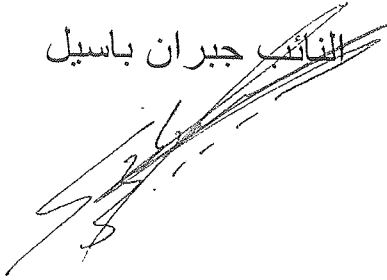 النائب جبران باسيل